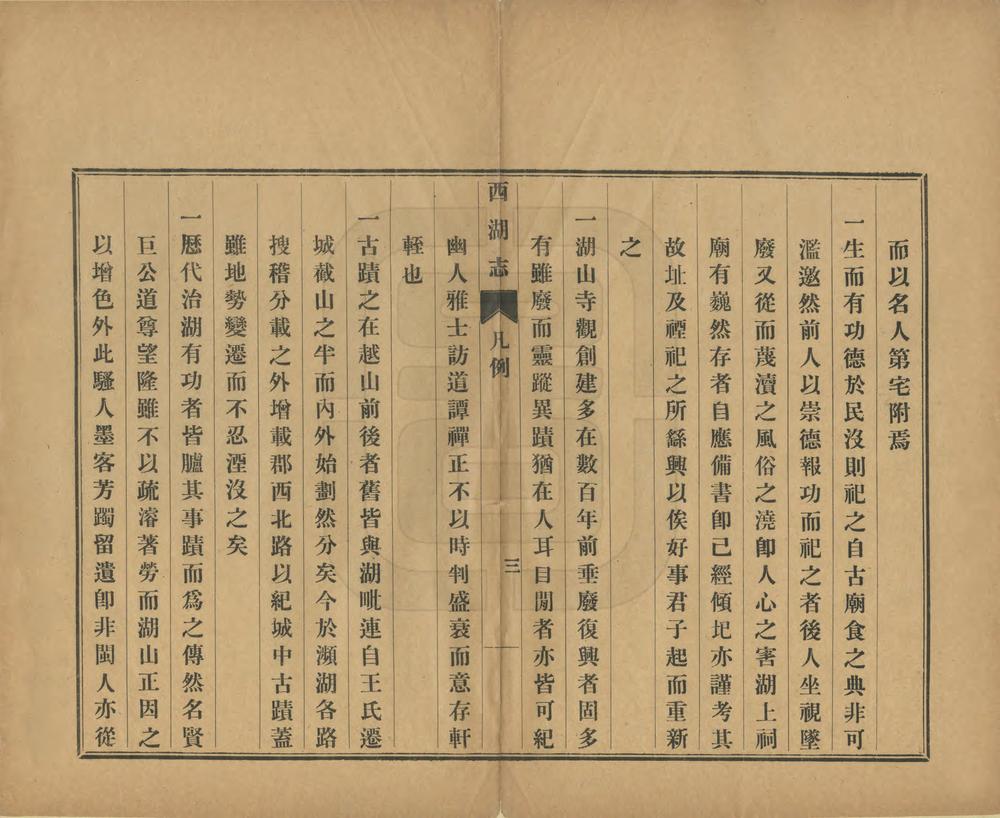 而以名人第宅附焉
一生而有功德於民沒則祀之自古廟食之典非可
濫邀然前人以崇德報功而祀之者後人坐視墜
廢又從而蔑瀆之風俗之澆卽人心之害湖上祠
廟有巍然存者自應備書卽已經傾圮亦謹考其
故址及禋祀之所繇興以俟好事君子起而重新
之
一湖山寺觀創建多在數百年前垂廢復興者固多
有雖廢而靈蹤異蹟猶在人耳目閒者亦皆可紀
西湖志 凡例 三
幽人雅士訪道譚禪正不以時判盛衰而意存軒
輊也
一古蹟之在越山前後者舊皆與湖毗連自王氏遷
城截山之半而內外始劃然分矣今於瀕湖各路
搜稽分載之外增載郡西北路以紀城中古蹟蓋
雖地勢變遷而不忍湮沒之矣
一歷代治湖有功者皆臚其事蹟而爲之傳然名賢
巨公道尊望隆雖不以疏濬著勞而湖山正因之
以增色外此騷人墨客芳躅留遺卽非閩人亦從